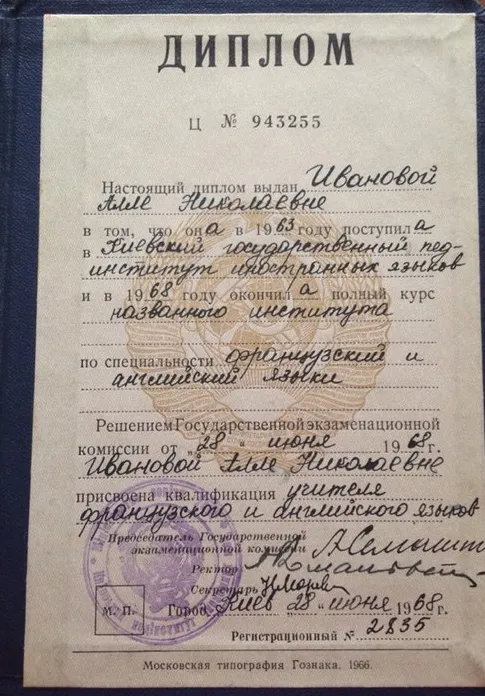 ДИПЛОМ
Ц № 943255
Настоящий диплом выдан Ивановой
Алле Николаевне
в том, что она в 1963 году поступила
в Киевский государственный пед-
институт иностранных языков
и в 1968 году окончила полный курс
названного института
по специальности французский и
английский языки
Решением Государственной экзаменационной
комиссии от „28“ июня 1968 г.
Ивановой Алле Николаевне
присвоена квалификация учителя
французского и английского языков
Председатель Государственной
экзаменационной комиссии
Ректор
Секретарь
М. П.
Город Киев „28“ июня 1968 г.
Регистрационный № 2835
Московская типография Гознака. 1966.